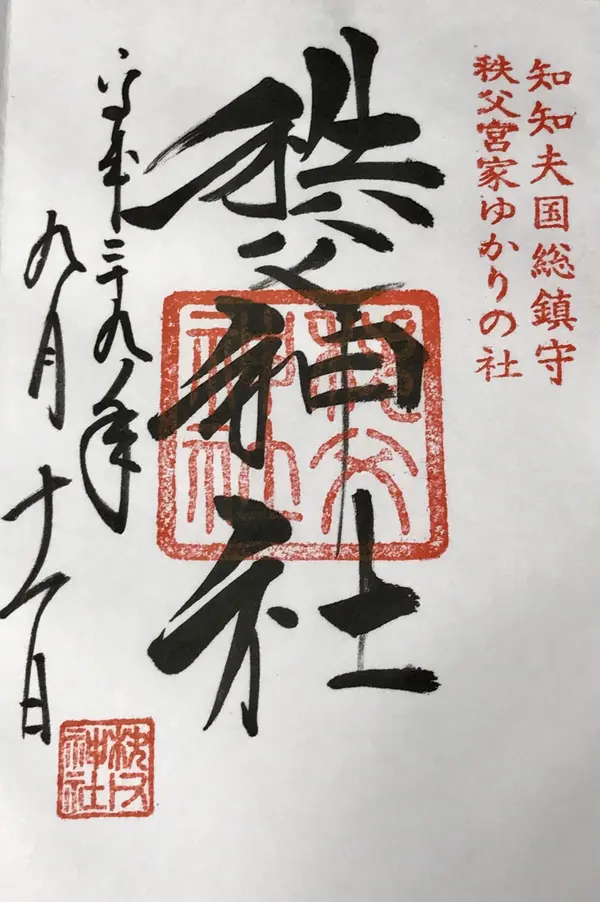 知知夫国総鎮守
秩父宮家ゆかりの社
秩父神社
秩父神社
平成二十九年
九月十一日
秩父神社